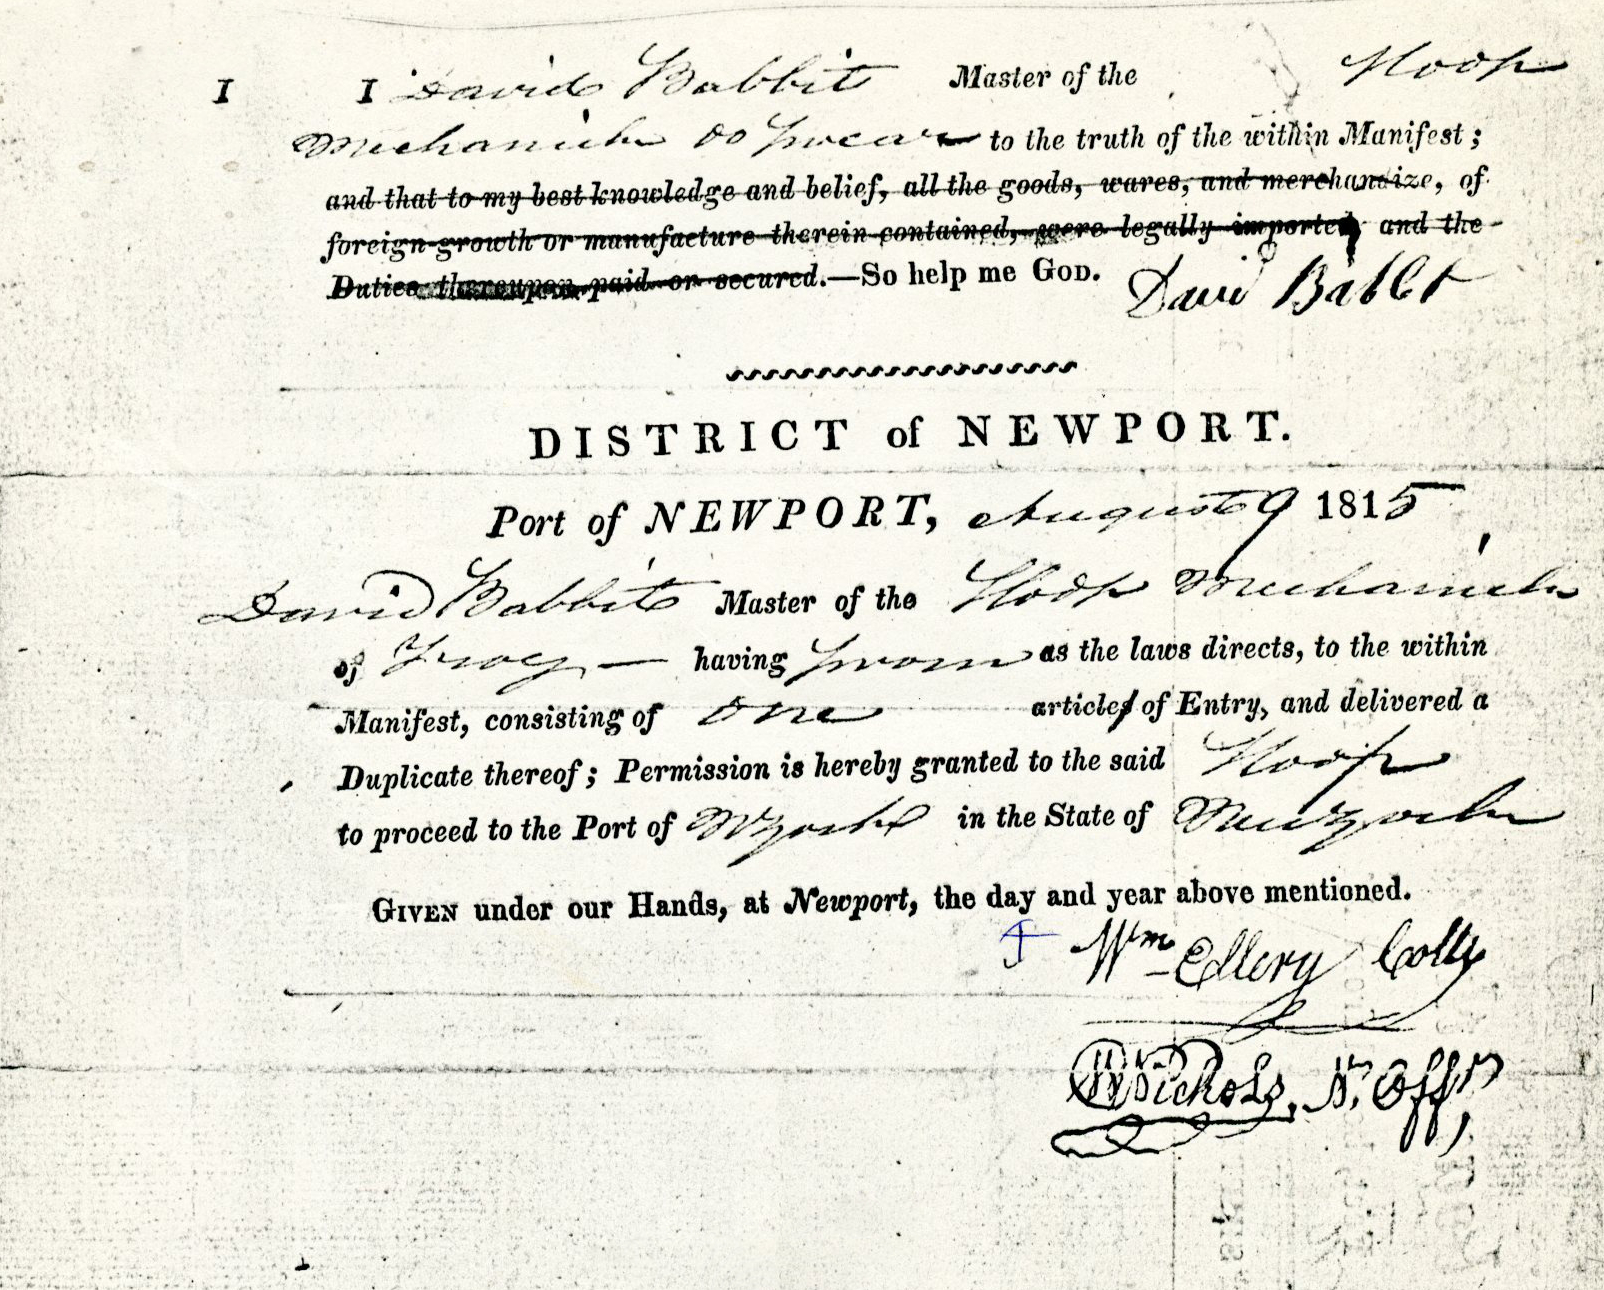 I I David Babbit Master of the Sloop
Mechanick do swear to the truth of the within Manifest;
and that to my best knowledge and belief, all the goods, wares, and merchandize, of
foreign growth or manufacture therein contained, were legally imported, and the
Duties thereupon paid or secured.—So help me GOD. David Babbit
DISTRICT of NEWPORT.
Port of NEWPORT, August 9 1815
David Babbit Master of the Sloop Mechanick
of Troy — having sworn as the laws directs, to the within
Manifest, consisting of one articles of Entry, and delivered a
Duplicate thereof; Permission is hereby granted to the said Sloop
to proceed to the Port of NYork in the State of New York
GIVEN under our Hands, at Newport, the day and year above mentioned.
Wm Ellery Collr
W Nichols, Nl. Offr,